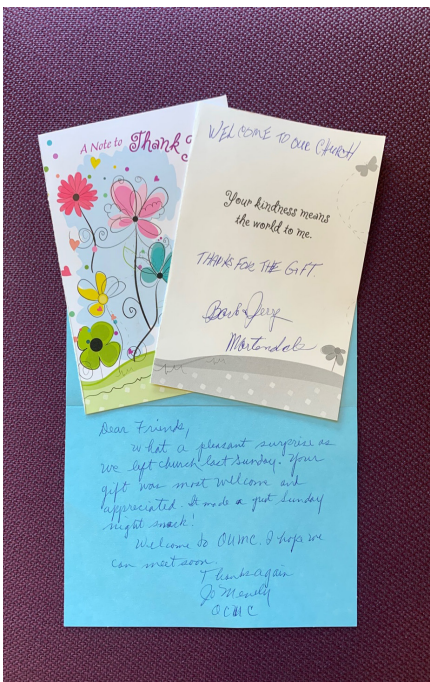 A Note to Thank
WELCOME TO OUR CHURCH
Your kindness means
the world to me.
THANKS FOR THE GIFT.
Barb & Jerry
Martindale
Dear Friends,
What a pleasant surprise as
we left church last Sunday! Your
gift was most welcome and
appreciated. It made a great Sunday
night snack!
Welcome to OUMC. I hope we
can meet soon.
Thanks again
Jo